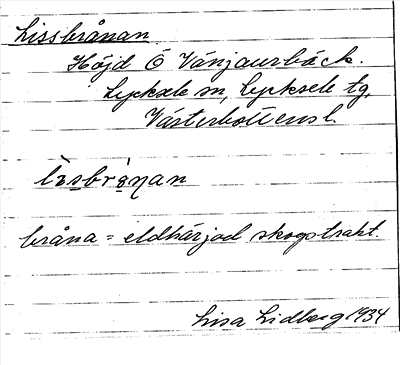 Lissbrånan
Höjd Ö Vänjaurbäck.
Lycksele sn, Lycksele tg,
Västerbottens l.
bråna = eldhärjad skogstrakt.
Lisa Lidberg 1934